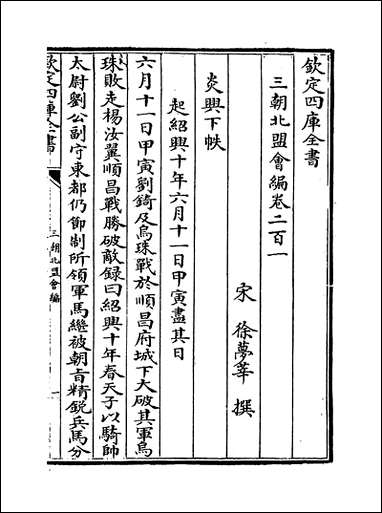 欽定四庫全書
三朝北盟會編卷二百一
宋 徐夢莘 撰
炎興下帙
起紹興十年六月十一日甲寅盡其日
六月十一日甲寅劉錡及烏珠戰於順昌府城下大破其軍烏
珠敗走楊汝翼順昌戰勝破敵録曰紹興十年春天子以騎帥
太尉劉公副守東都仍節制所領軍馬繼被朝旨精鋭兵馬分
欽定四庫全書
三朝北盟會編
一